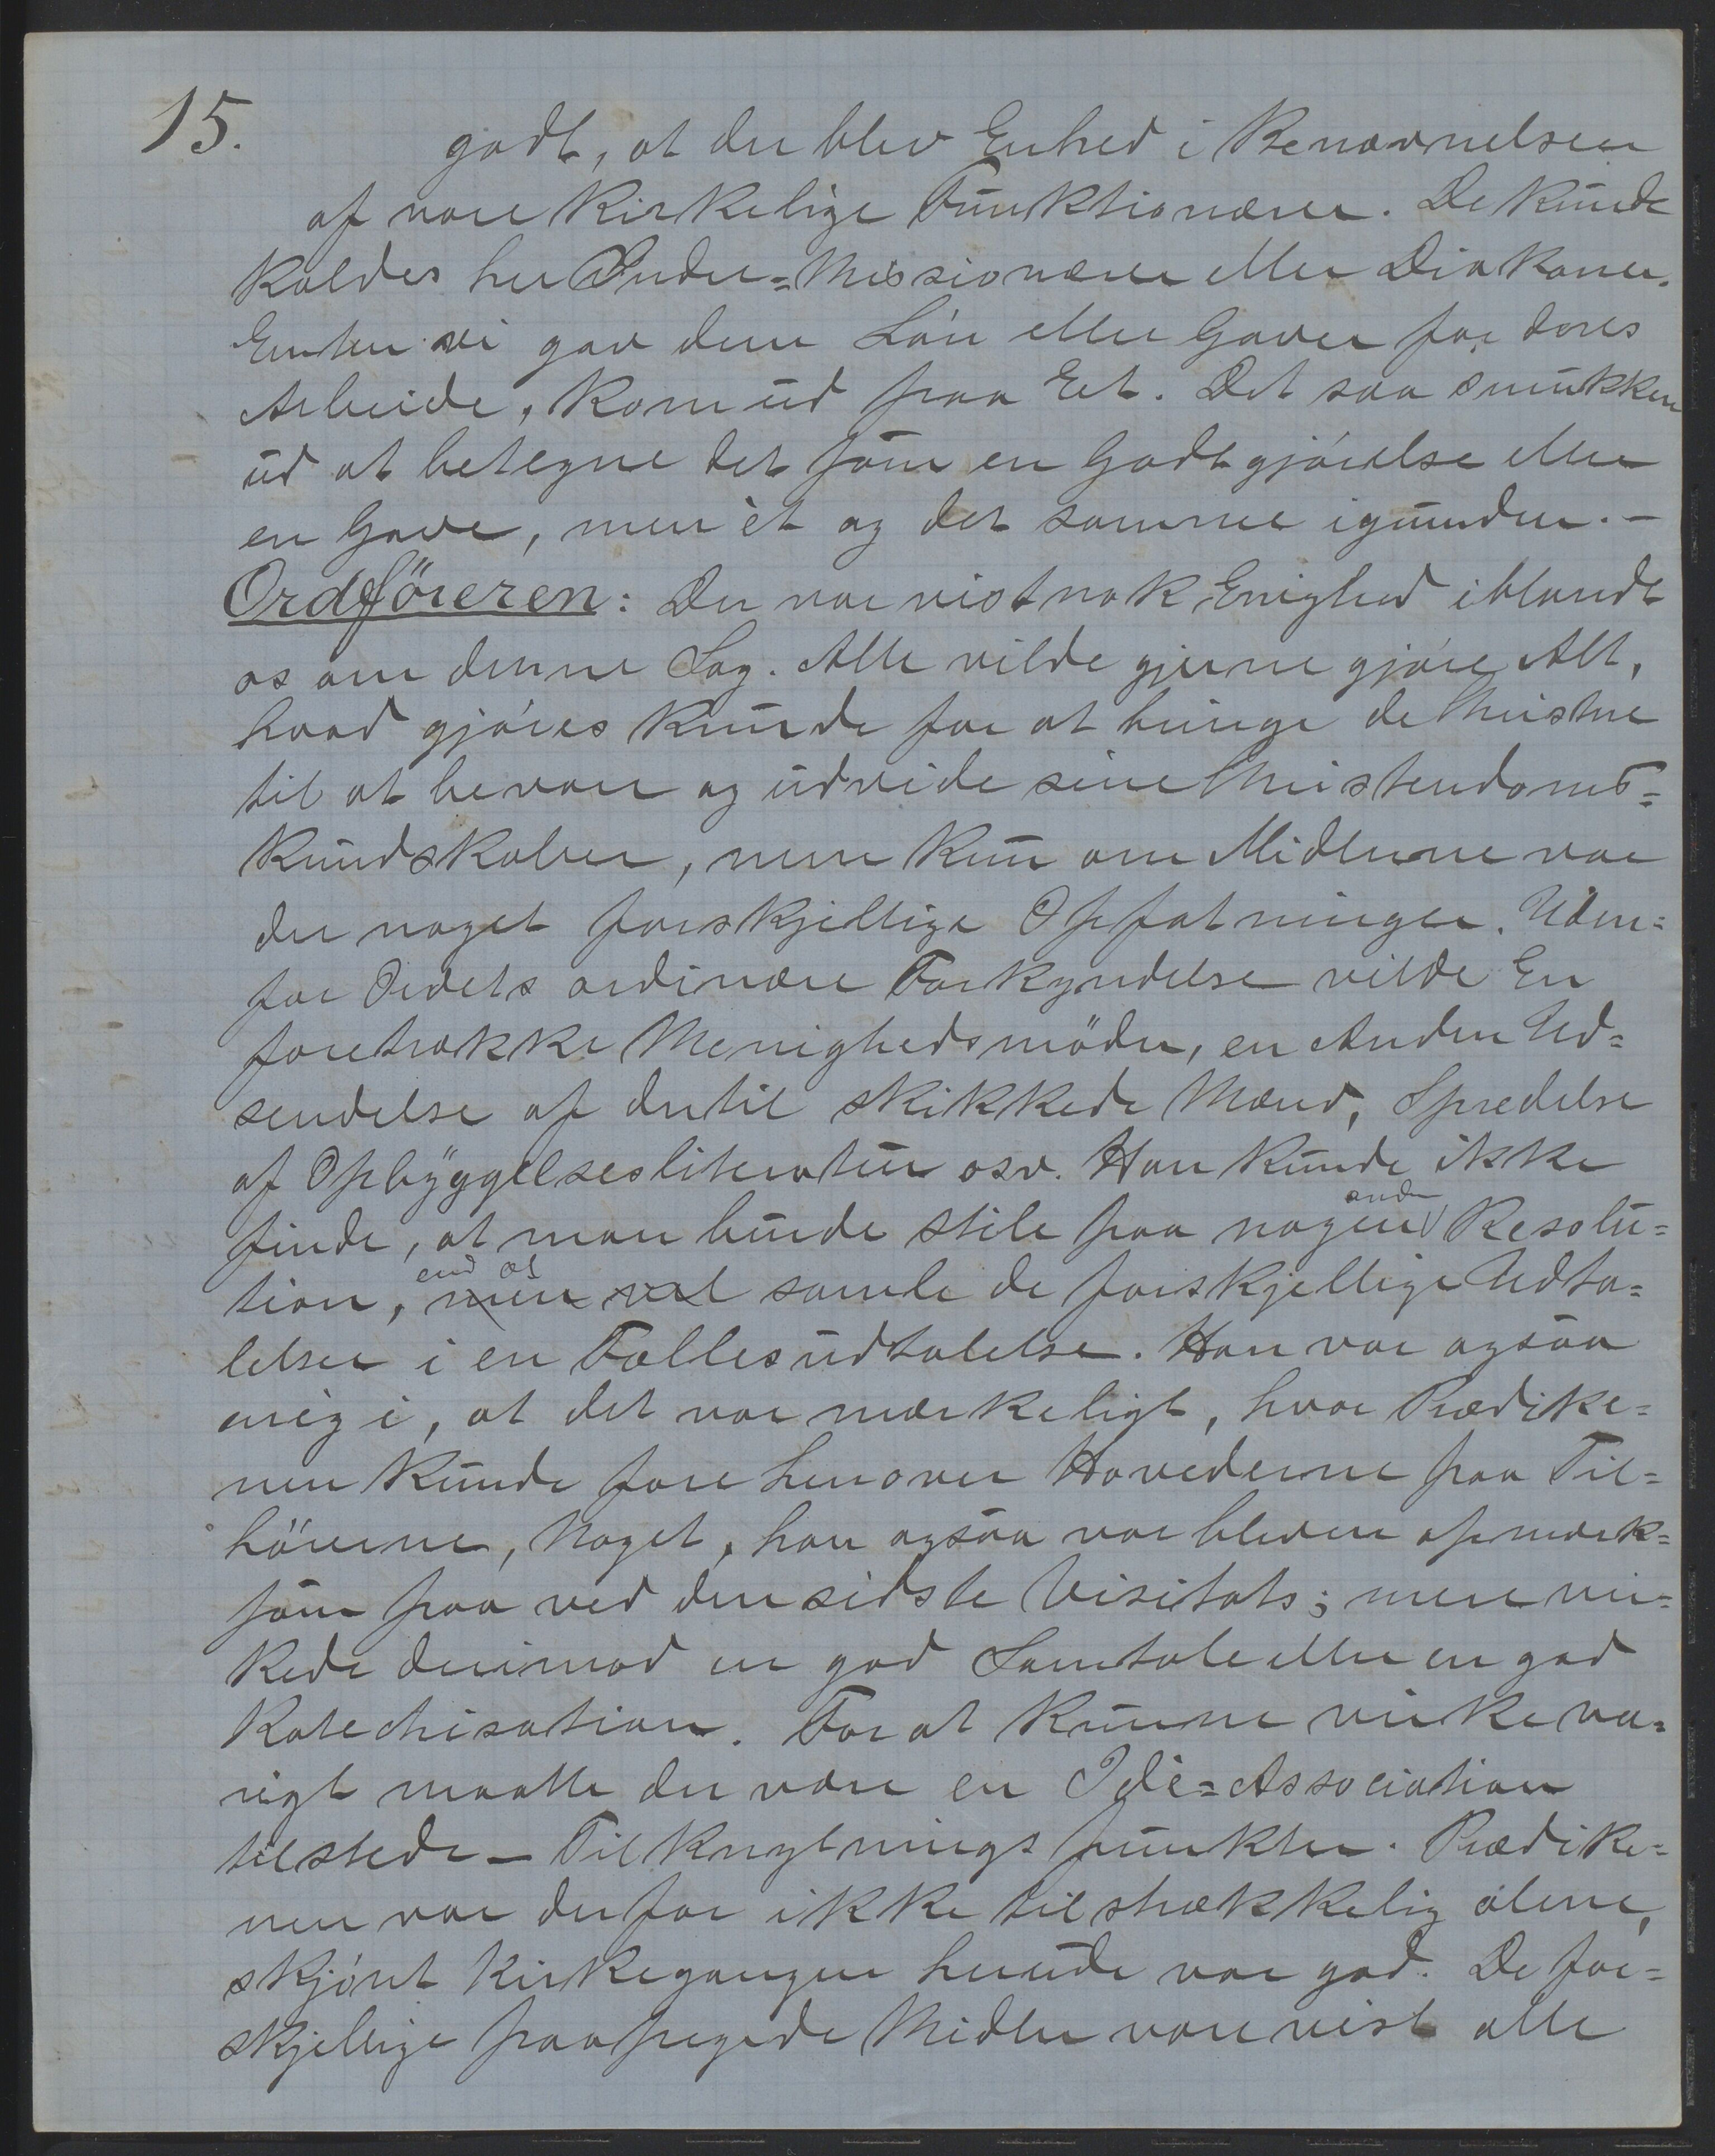 15.
godt, at der blev Enhed i Benævnelsen
af vore Kirkelige Funktionærer. De kunde
kaldes her Under=Missionærer eller Diakoner.
Enten vi gav dem Lön eller Gaver for deres
Arbeide, kom ud paa Et. Det saa smukkere
ud at betegne det som en Godtgjörelse eller
en Gave, men èt og det samme igrunden. —
Ordföreren: Der var vistnok Enighed iblandt
os om denne Sag. Alle vilde gjerne gjöre Alt,
hvad gjöres kunde for at bringe de Kristne
til at bevare og udvide sine Kristendoms=
kundskaber, men kun om Midlerne var
der noget forskjellige Opfatninger. Uden=
for Ordets ordinære Forkyndelse vilde En
foretrække Menighedsmöder, en Anden Ud=
sendelse af dertil skikkede Mænd, Spredelse
af Opbyggelsesliteratur osv. Han kunde ikke
finde, at man burde stile paa nogen anden Resolu=
tion, men vel end at samle de forskjellige Udta=
lelser i en Fællesudtalelse. Han var ogsaa
enig i, at det var mærkeligt, hvor Prædike=
nen kunde fare henover Hovederne paa Til=
hörerne, Noget, han ogsaa var bleven opmærk=
som paa ved den sidste Visitats; mere vir=
kede derimod en god Samtale eller en god
Katechisation. For at kunne virke va=
rigt maatte der være en Idè=Association
tilstede — Tilknytningspunkter. Prædike=
nen var derfor ikke tilstrækkelig alene,
skjönt Kirkegangen herude var god. De for=
skjellige paapegede Midler vare vist alle